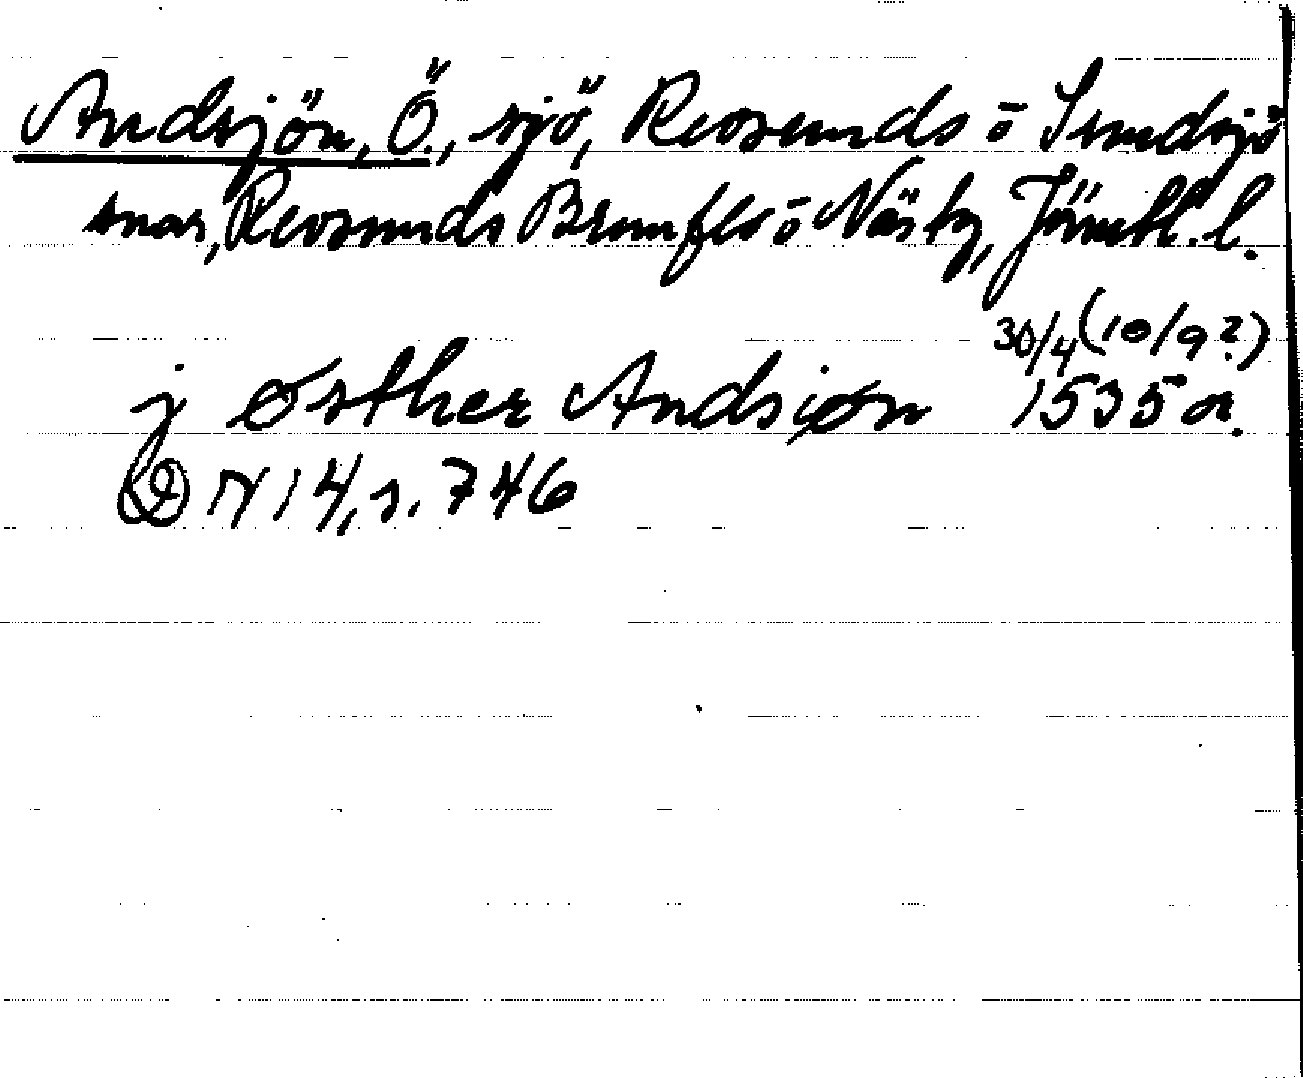 Andsjön, Ö., sjö, Revsunds o Sundsjö
snar, Revsunds Brunflo o Näs tg, Jämtl. l.
30/4 (10/9?)
j østher Andsiøn 1535 or.
DN 14, s. 746